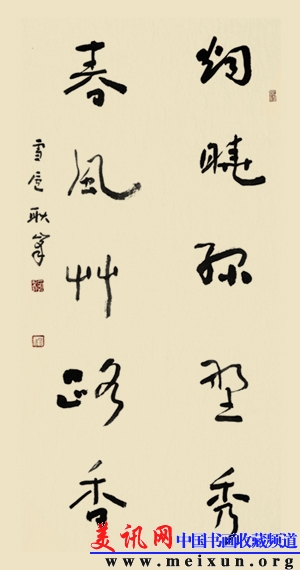 曉 野秀
春風艸路香
雪 耿峯
美讯网 中国书画收藏频道
www.meixun.org